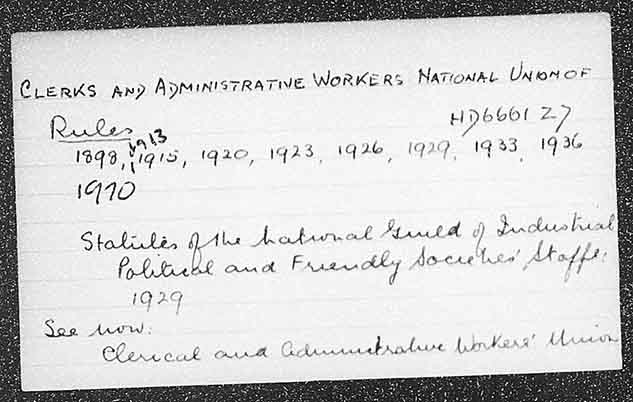 CLERKS AND ADMINISTRATIVE WORKERS NATIONAL UNION OF
Rules HD6661 Z7
1898, 1913, 1915, 1920, 1923, 1926, 1929, 1933, 1936
1970
Statutes of the National Guild of Industrial
Political and Friendly Societies' Staffs:
1929
See now:
Clerical and Administrative Workers' Union